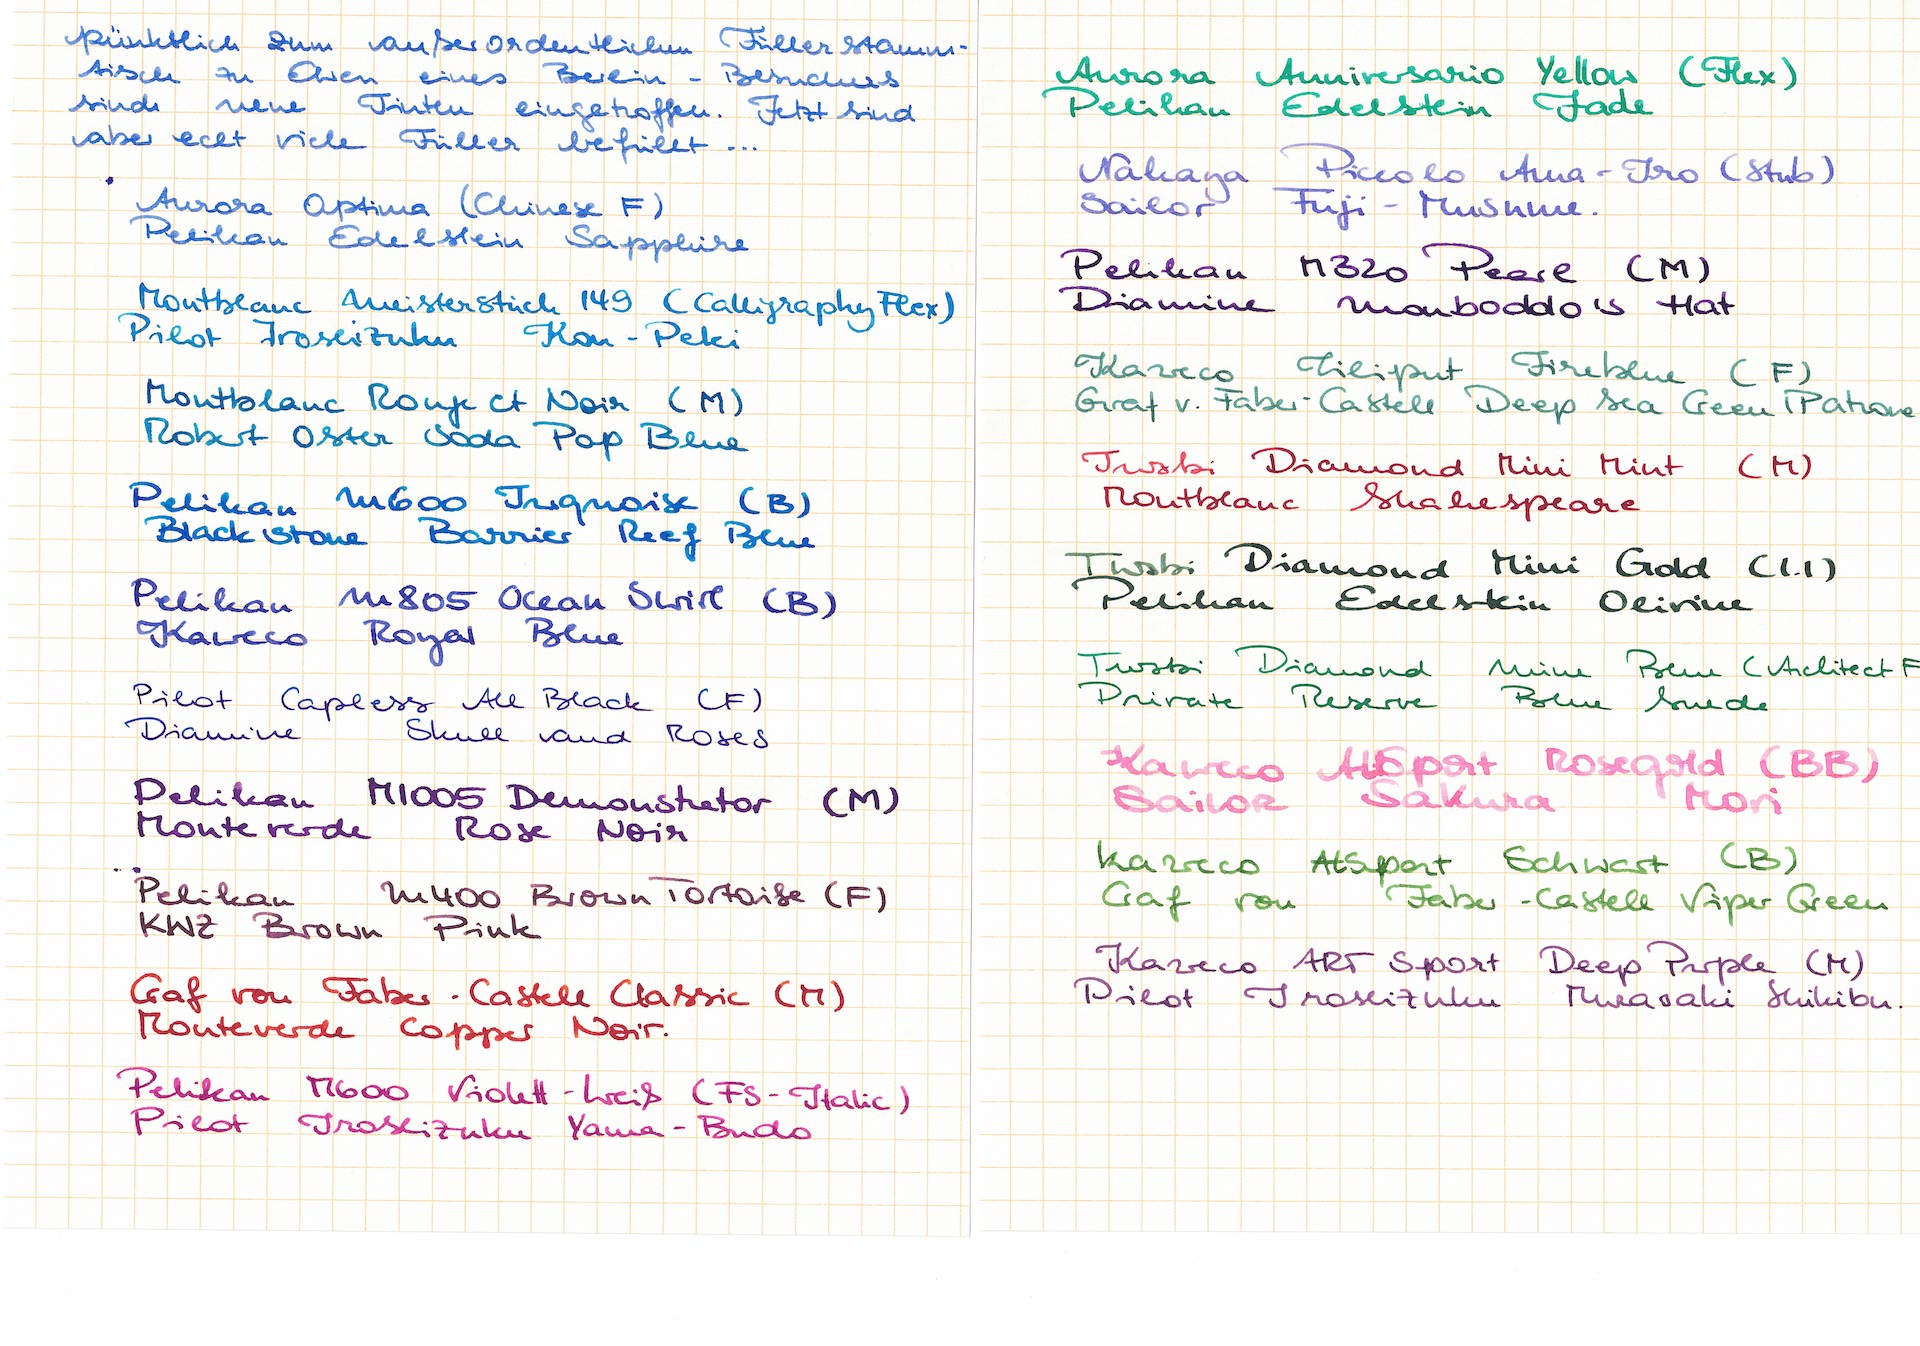 pünktlich zum außerordentlichen Füllerstamm-
tisch zu Ehren eines Berlin-Besuchers
sind neue Tinten eingetroffen. Jetzt sind
aber echt viele Füller befüllt ...
Aurora Optima (Chinese F)
Pelikan Edelstein Sapphire
Montblanc Meisterstück 149 (Calligraphy Flex)
Pilot Iroshizuku Kon-Peki
Montblanc Rouge et Noir (M)
Robert Oster Soda Pop Blue
Pelikan M600 Turquoise (B)
Blackstone Barrier Reef Blue
Pelikan M805 Ocean Swirl (B)
Kaweco Royal Blue
Pilot Capless All Black (F)
Diamine Skull and Roses
Pelikan M1005 Demonstrator (M)
Monteverde Rose Noir
Pelikan M400 Brown Tortoise (F)
KWZ Brown Pink
Graf von Faber-Castell Classic (M)
Monteverde Copper Noir.
Pelikan M600 Violett-Weiß (FS-Italic)
Pilot Iroshizuku Yama-Budo
Aurora Anniversario Yellow (Flex)
Pelikan Edelstein Jade
Nakaya Piccolo Ama-Iro (Stub)
Sailor Fuji-Musume.
Pelikan M320 Pearl (M)
Diamine Monboddo's Hat
Kaweco Liliput Fireblue (F)
Graf v. Faber-Castell Deep Sea Green (Patrone
Twsbi Diamond Mini Mint (M)
Montblanc Shakespeare
Twsbi Diamond Mini Gold (1.1)
Pelikan Edelstein Olivine
Twsbi Diamond Mini Blue (Architect F
Private Reserve Blue Suede
Kaweco AlSport Rosegold (BB)
Sailor Sakura Mori
Kaweco AlSport Schwarz (B)
Graf von Faber-Castell Viper Green
Kaweco ART Sport Deep Purple (M)
Pilot Iroshizuku Murasaki Shikibu.